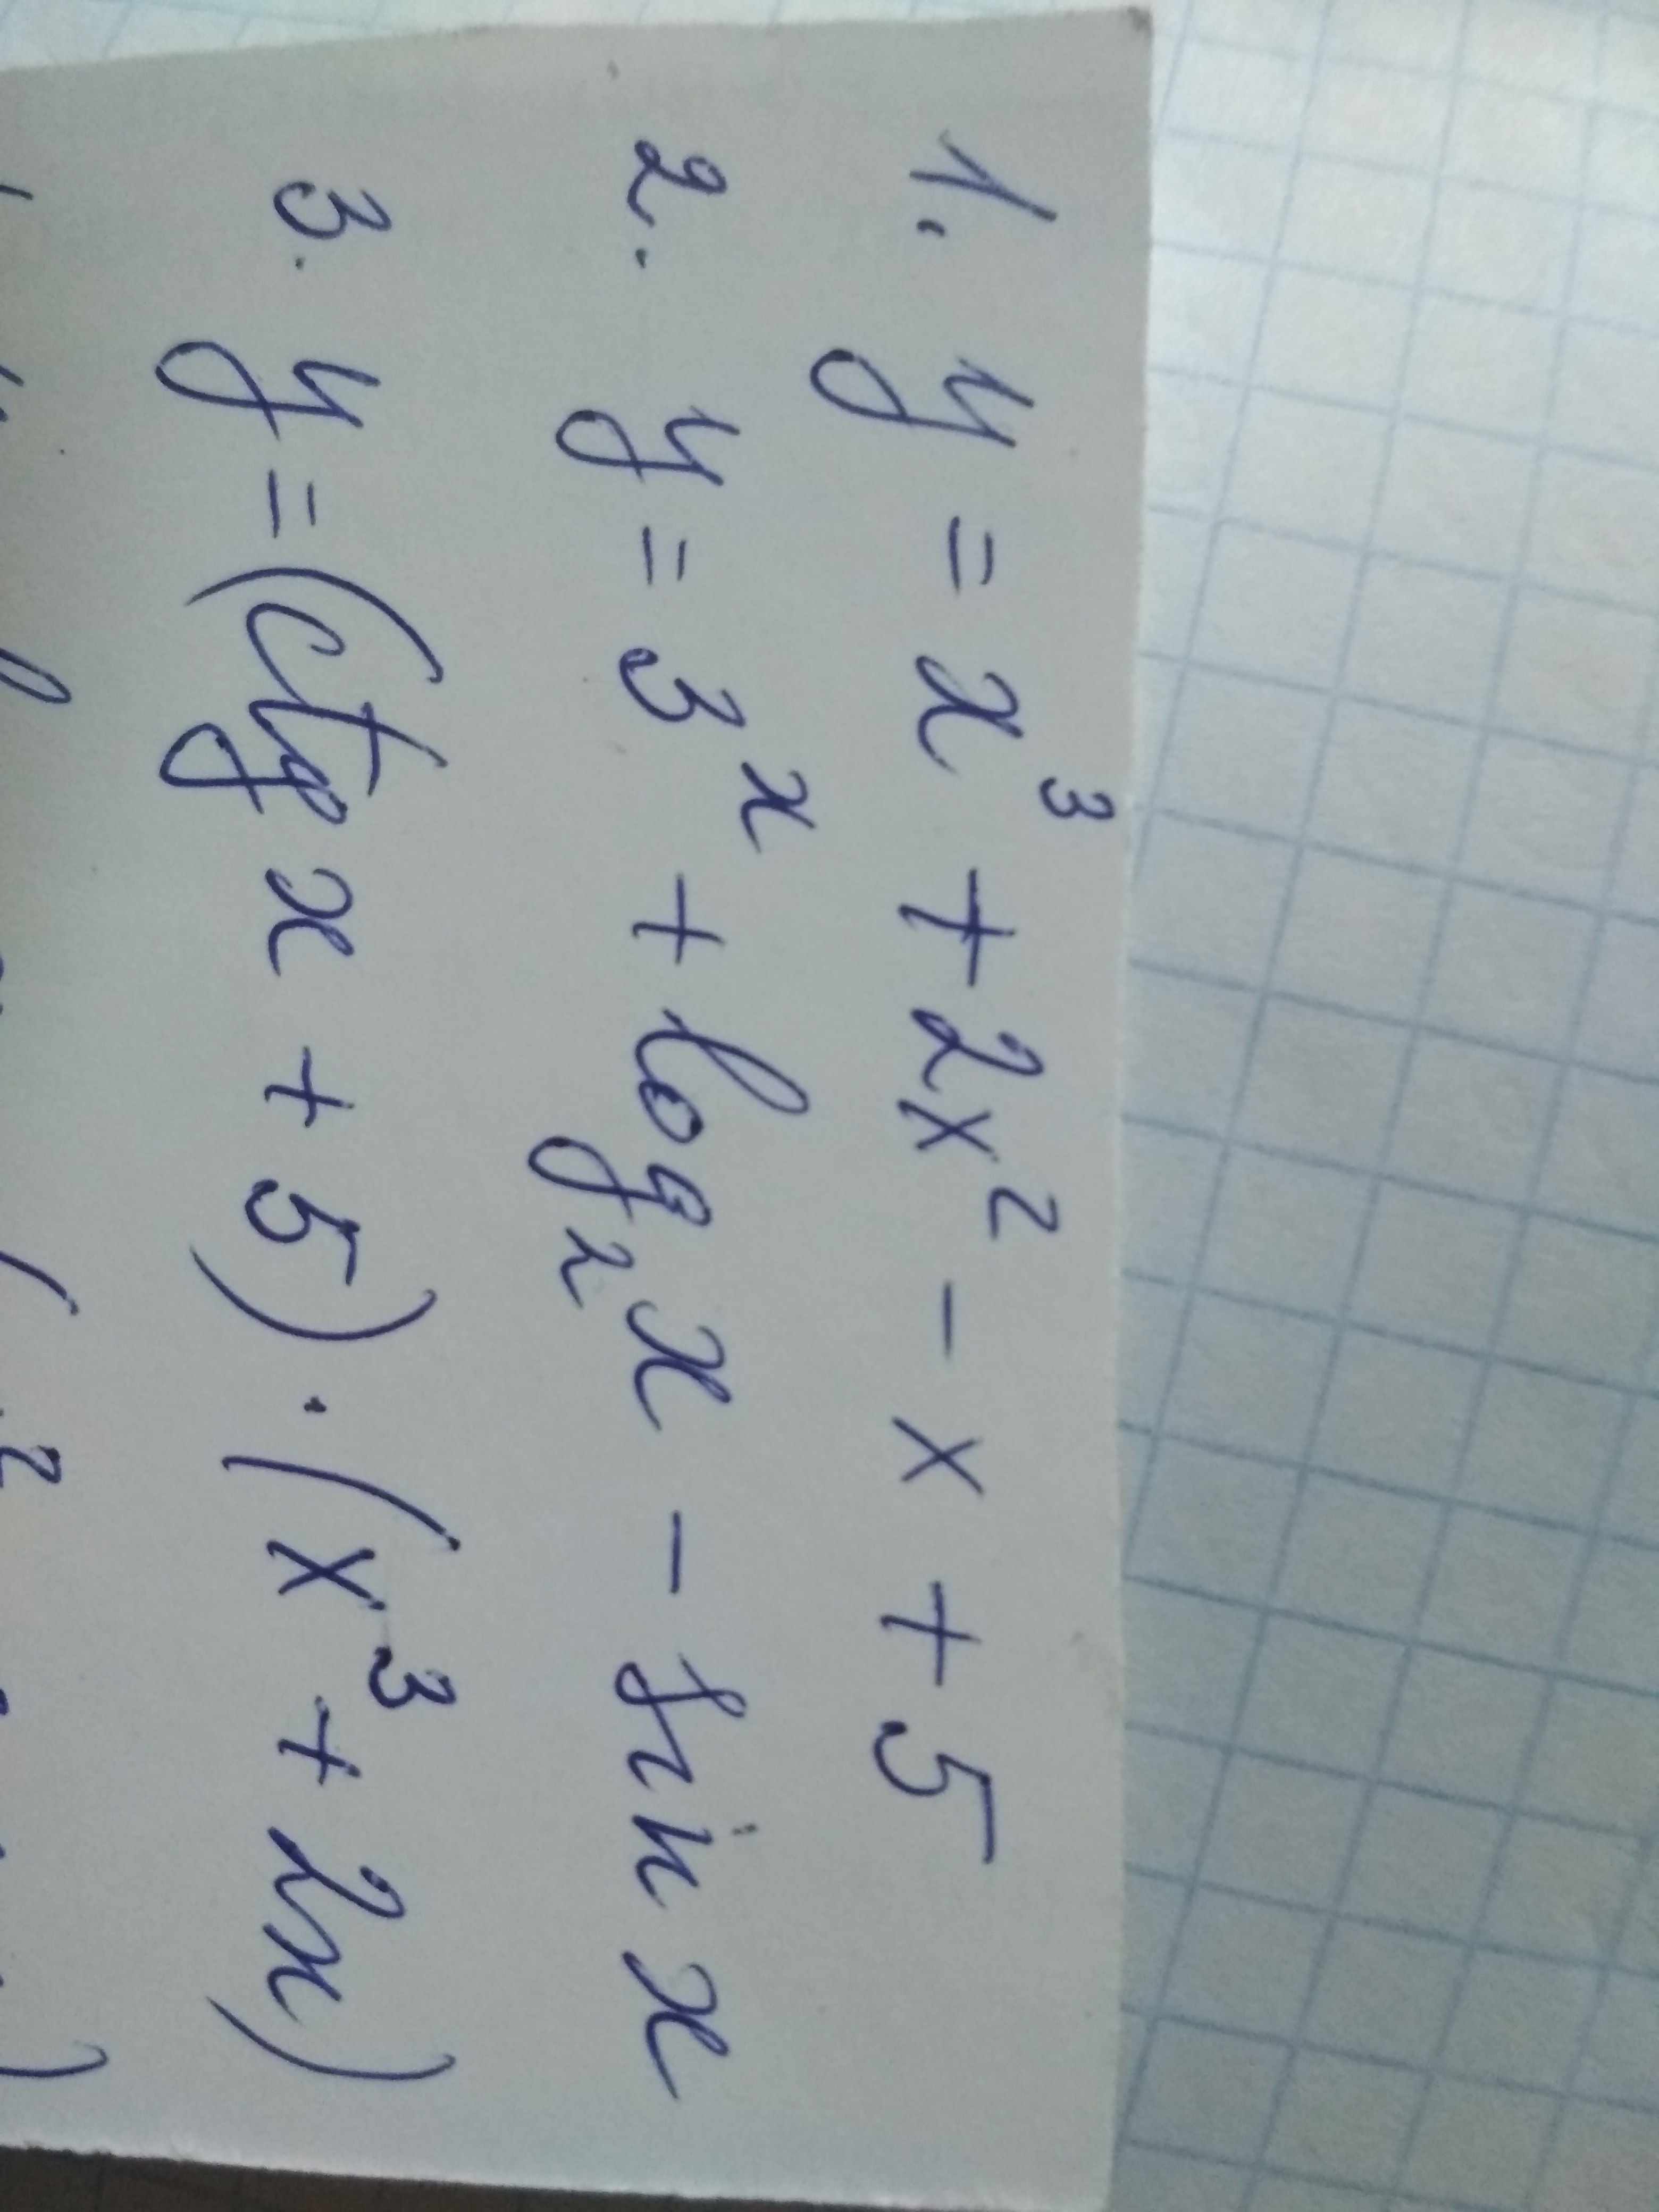 1. y = x³ + 2x² - x + 5
2. y = 3ˣ + log₂x - sin x
3. y = (ctg x + 5) · (x³ + 2x)